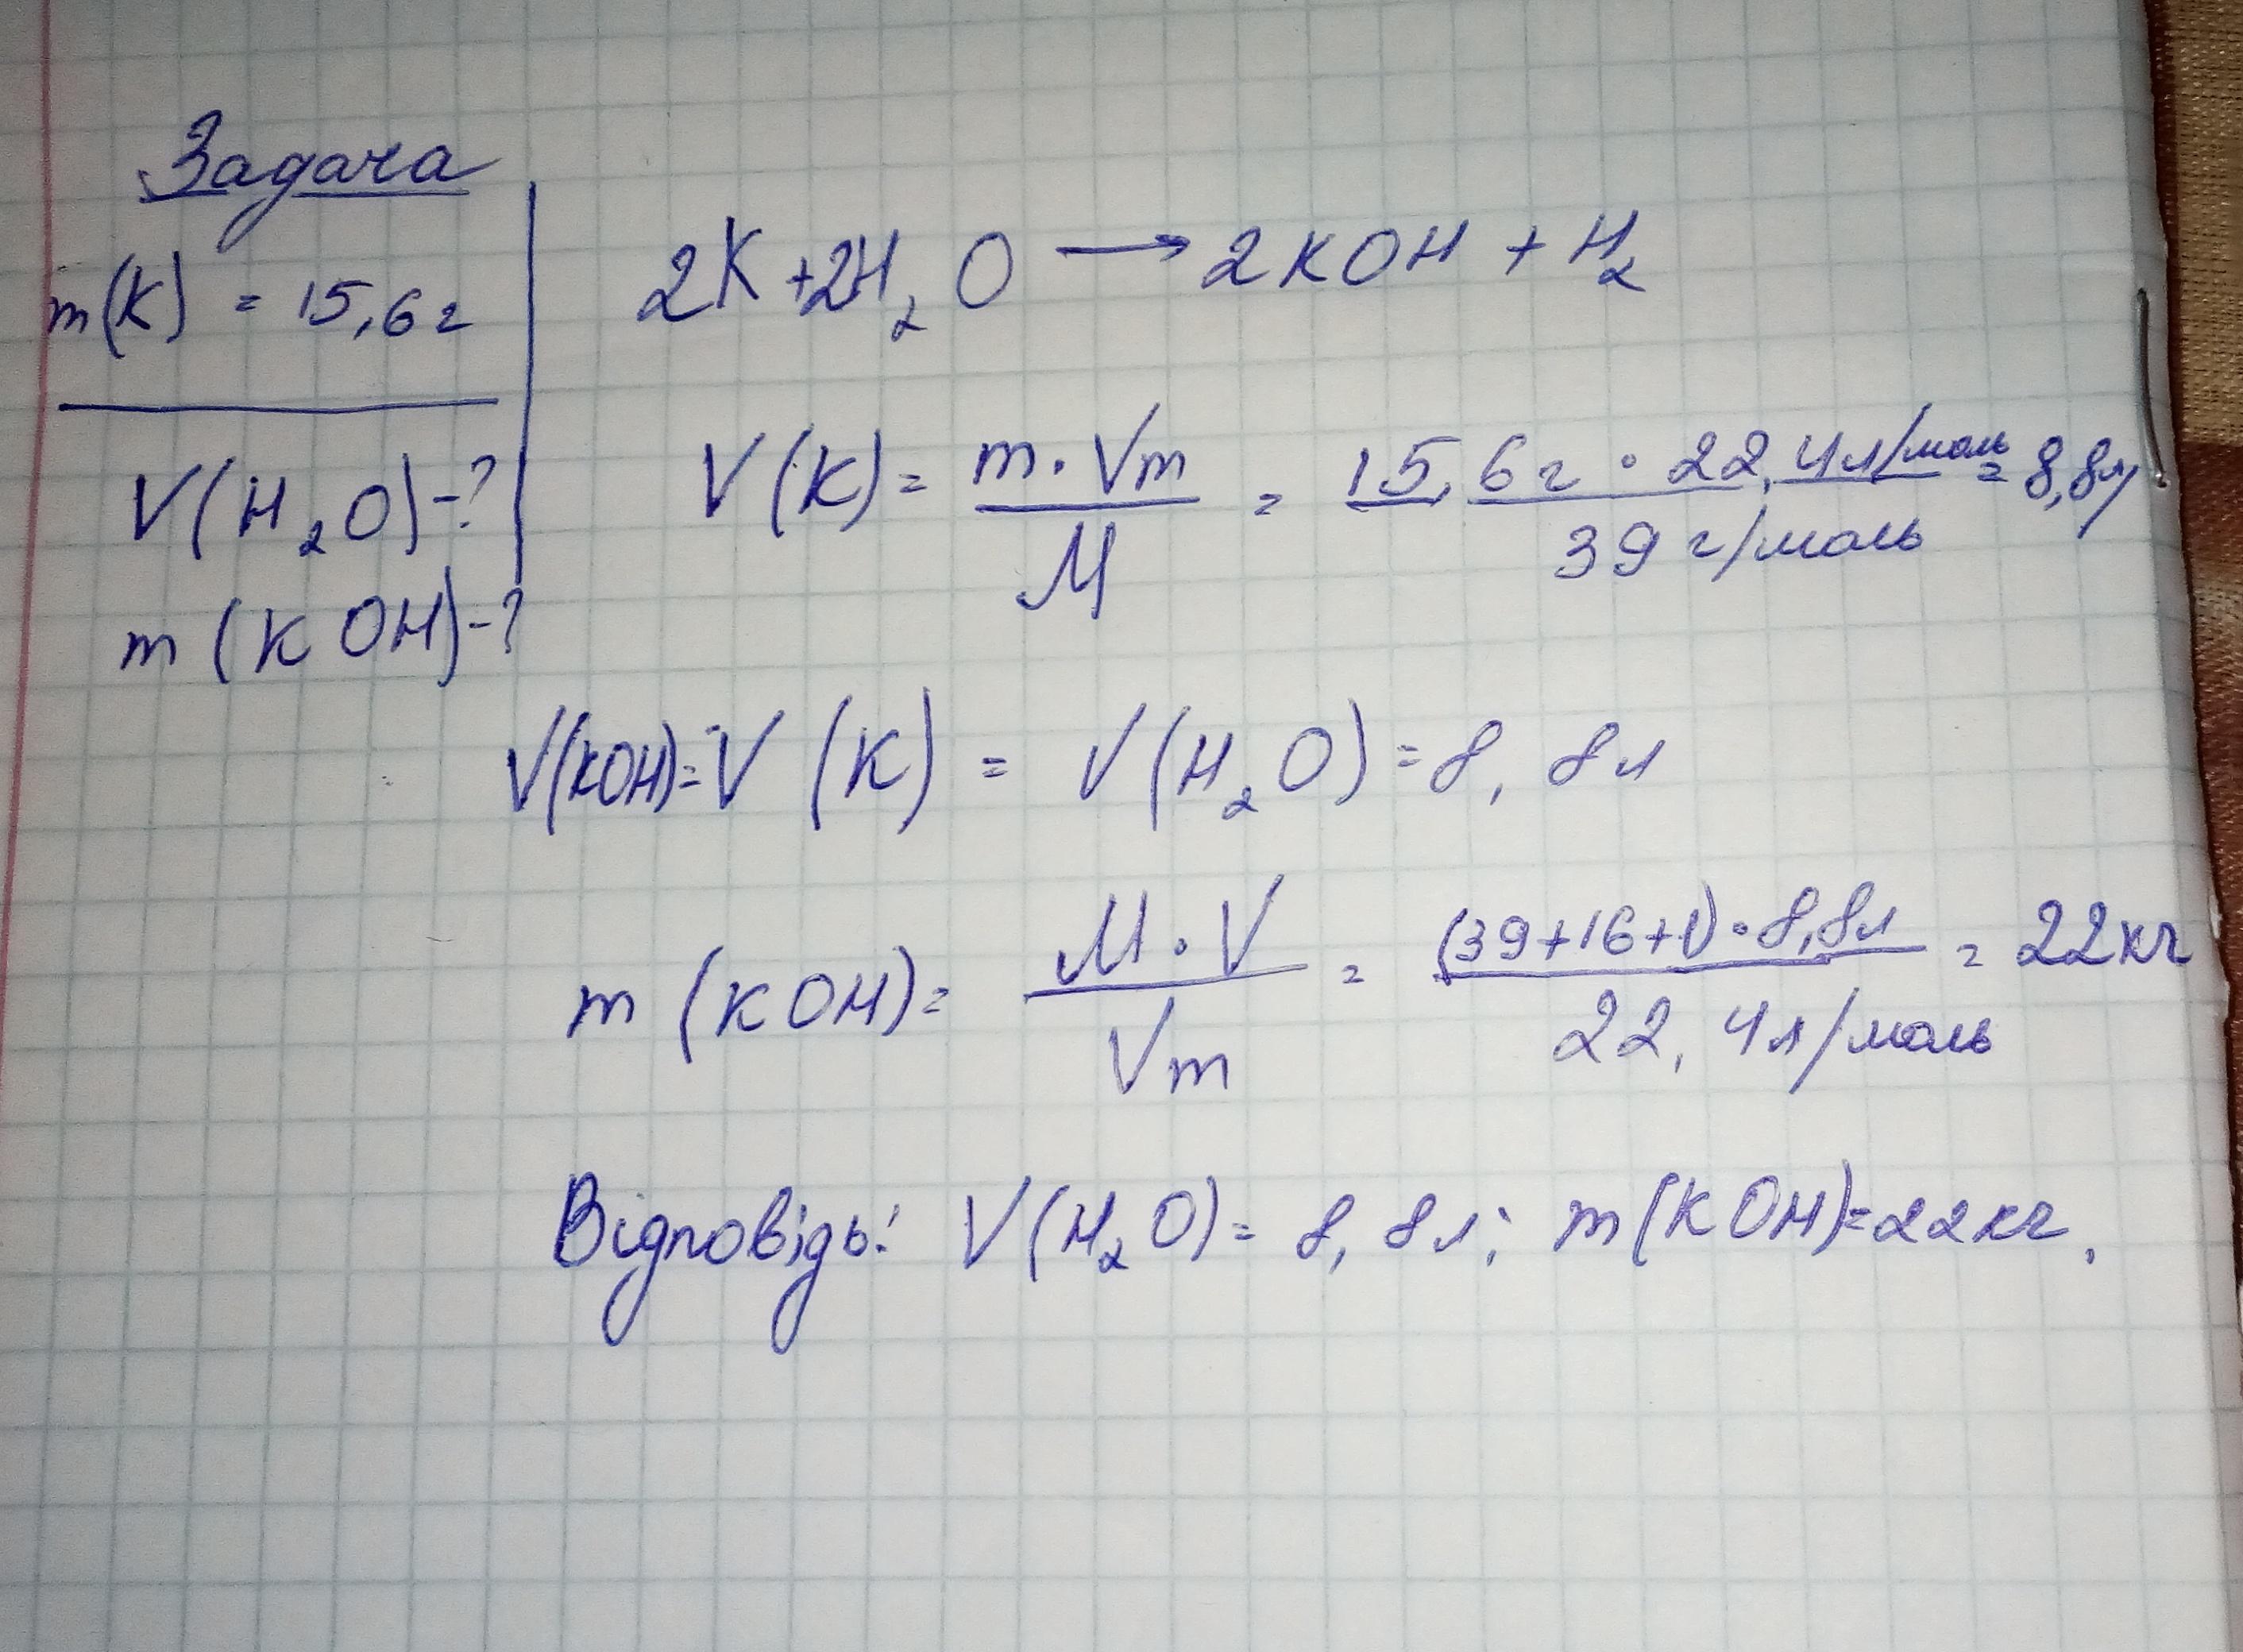 Задача
m(K) = 15,6 г
V(H₂O)-?
m(KOH)-?
2K+2H₂O → 2KOH + H₂
V(K) = m·Vm / M = 15,6 г · 22,4 л/моль / 39 г/моль = 8,8 л
V(KOH) = V(K) = V(H₂O) = 8,8 л
m(KOH) = M·V / Vm = (39+16+1)·8,8 л / 22,4 л/моль = 22 кг
Відповідь: V(H₂O) = 8,8 л; m(KOH) = 22 кг.